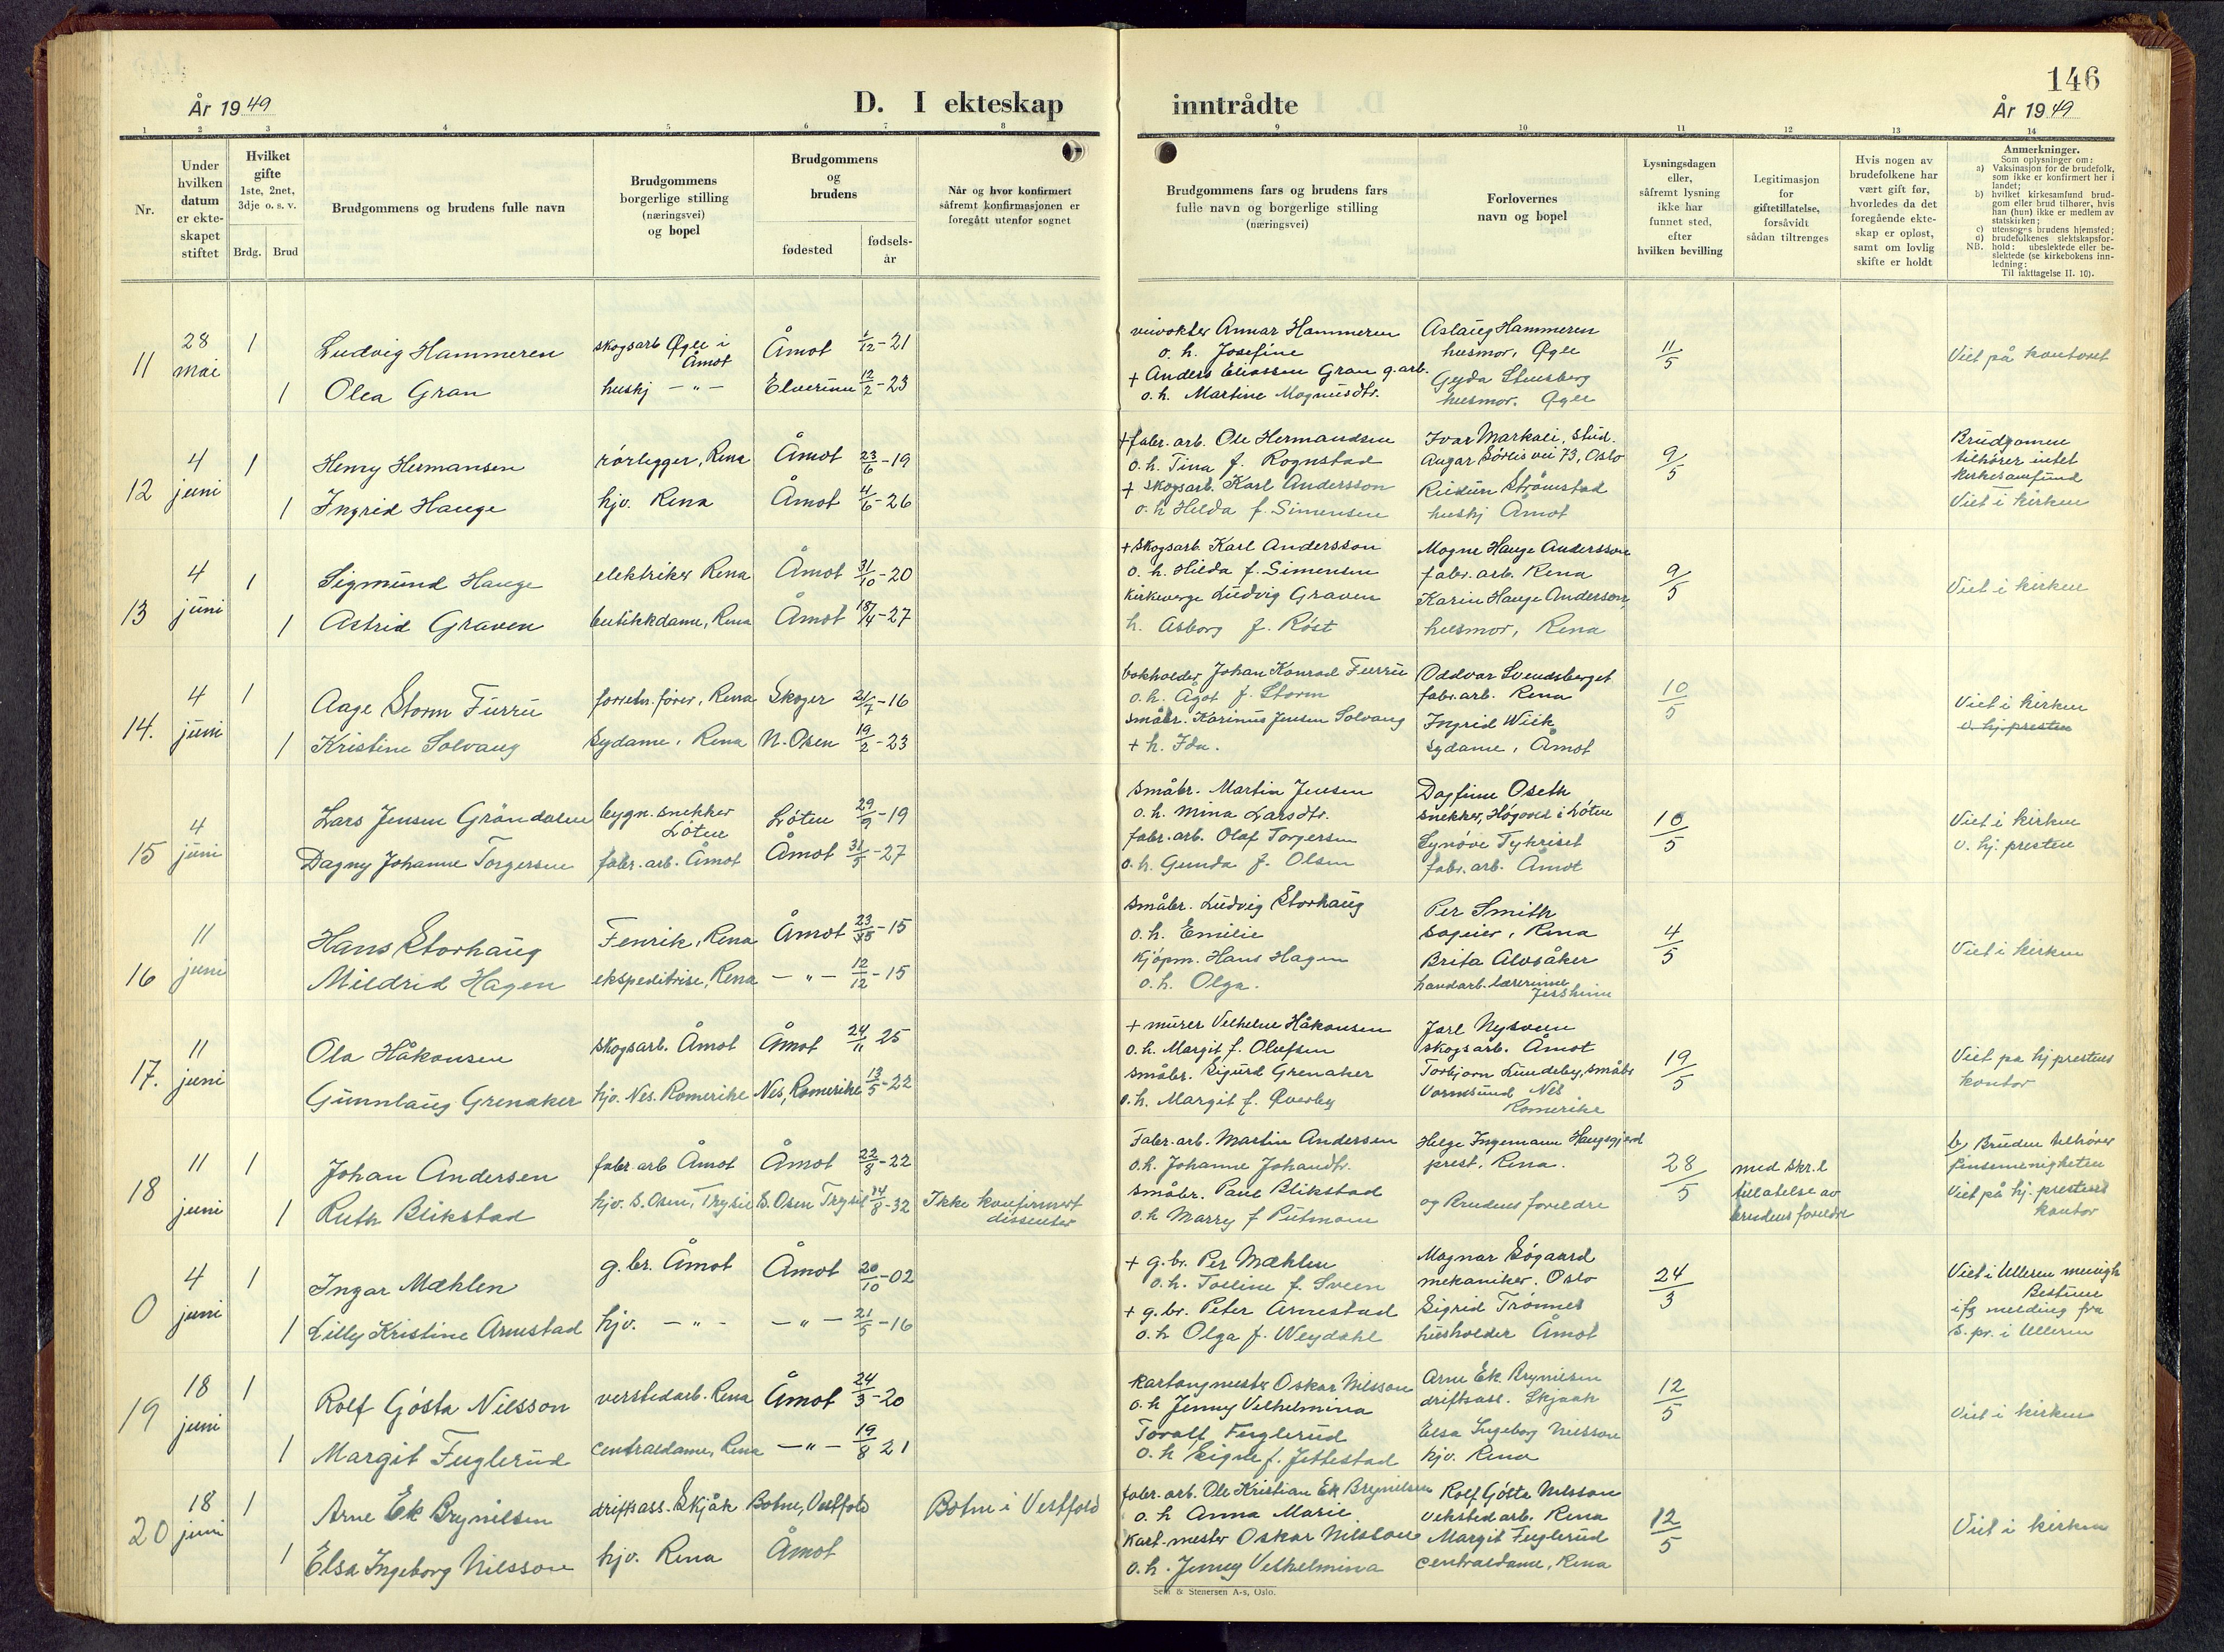 146
År 1949
D. I ekteskap
inntrådte
År 1949
1
2
3
4
5
6
7
8
9
10
11
12
13
14
Nr.
Under
hvilken
datum
er ekte-
skapet
stiftet
Hvilket
gifte
1ste, 2net,
3dje o. s. v.
Brdg.
Brud
Brudgommens og brudens fulle navn
Brudgommens
borgerlige stilling
(næringsvei)
og bopel
Brudgommens
og
brudens
fødested
fødsels-
år
Når og hvor konfirmert
såfremt konfirmasjonen er
foregått utenfor sognet
Brudgommens fars og brudens fars
fulle navn og borgerlige stilling
(næringsvei)
Forlovernes
navn og bopel
Lysningsdagen
eller,
såfremt lysning
ikke har
funnet sted,
efter
hvilken bevilling
Legitimasjon
for
giftetillatelse,
forsåvidt
sådan tiltrenges
Hvis nogen av
brudefolkene har
vært gift før,
hvorledes da det
foregående ekte-
skap er opløst,
samt om lovlig
skifte er holdt
Anmerkninger.
Som oplysninger om:
a) Vaksinasjon for de brudefolk,
som ikke er konfirmert her i
landet;
b) hvilket kirkesamfund brud-
gom eller brud tilhører, hvis
han (hun) ikke er medlem av
statskirken;
c) utensogns brudens hjemsted;
d) brudefolkenes slektskapsfor-
hold: ubeslektede eller be-
slektede (se kirkebokens inn-
ledning:
NB. Til iakttagelse II. 10).
11
28
mai
1
Ludvig Hammeren
skogsarb Øgle i
Åmot
Åmot 1/12-21
1
Olea Gran
huskj -"-
Elverum 12/2-23
veivokter Annar Hammeren
o. h. Josefine
+ Anders Eliassen Gran g.arb.
o. h. Martine Magnusdtr.
Aslaug Hammeren
husmor, Øgle
Gyda Stensberg
husmor. Øgle
11/5
Viet på kontoret
12
4
juni
1
Henry Hermansen
rørlegger, Rena
Åmot 23/6-19
1
Ingrid Hauge
hjv. Rena
Åmot 4/6-26
+ fabr. arb. Ole Hermandsen
o. h. Tina f. Rognstad
+ skogsarb. Karl Andersson
o. h Hilda f. Simensen
Ivar Markali, stud.
Augar Sørlis vei 73, Oslo
Reidun Strømstad
huskj Åmot
9/5
Brudgomen
tilhører intet
kirkesamfund
Viet i kirken
13
4
juni
1
Sigmund Hauge
elektriker Rena
Åmot 31/10-20
1
Astrid Graven
butikkdame, Rena
Åmot 18/4-27
+ skogsarb. Karl Andersson
o. h. Hilda f. Simensen
kirkeverge Ludvig Graven
h. Asborg f. Røst
Mogne Hauge Andersson
fabr. arb. Rena
Karin Hauge Anderson,
husmor, Rena
9/5
Viet i kirken
14.
4
juni
1
Aage Storm Furru
forretn. fører, Rena
Skoger 21/7-16
1
Kristine Solvang
sydame, Rena
N. Osen 19/2-23
bokholder Johan Konrad Furru
o. h. Ågot f. Storm
småbr. Karinus Jensen Solvang
+ h. Ida.
Oddvar Svendsberget
fabr. arb. Rena
Ingrid Wiik
sydame, Åmot
10/5
Viet i kirken
v. hj. presten
15
4
juni
Lars Jensen Grøndalen
bygn. snekker
Løten
Løten 29/9-19
Dagny Johanne Torgersen
fabr. arb. Åmot
Åmot 31/5-27
småbr. Martin Jensen
o. h. Mina Larsdtr.
fabr. arb. Olaf Torgersen
o. h. Gunda f. Olsen
Dagfinn Oseth
snekker, Høgvol i Løten
Synøve Tyhriset
fabr. arb. Åmot
10/5
Viet i kirken
v. hj. presten
16
11
juni
Hans Storhaug
Fenrik, Rena
Åmot 23/5-15
Mildrid Hagen
ekspeditrise, Rena
-"- 12/12-15
småbr. Ludvig Storhaug
o. h. Emilie
Kjøpm. Hans Hagen
o. h. Olga.
Per Smith
sageier, Rena
Brita Alvsåker
handarb. lærerinne
Jessheim
4/5
Viet i kirken
17.
11
juni
Ola Håkonsen
skogsarb. Åmot
Åmot 24/11 25
Gunnlaug Grenaker
hjv. Nes. Romerike
Nes, Romerike 13/5-22
+ murer Velhelm Håkonsen
o. h. Margit f. Olufsen
småbr. Sigurd Grenaker
o. h. Margit f. Øverby
Jarl Nysveen
skogsarb. Åmot
Torbjørn Lundeby, småbr
Vormsund Nes
Romerike
19/5
Viet på hj prestens
kontor
18
11
juni
1
Johan Andersen
fabr. arb Åmot
Åmot 22/8-22
1
Ruth Blikstad
hjv. S. Osen, Trysil
S. Osen Trysil 14/8-32
Ikke konfirmert
dissenter
Fabr. arb. Martin Andersen
o. h. Johanne Johandtr.
småbr. Paul Blikstad
o. h Marry f Putmann
Helge Ingemann Haugsgjerd
prest, Rena.
og brudens foreldre
28/5
med skr. l
tillatelse av
brudens foreldre
b, Bruden tilhører
pinsemenigheten
Viet på hj. prestens
kontor
0
4
juni
1
Ingar Mæhlen
g. br. Åmot
Åmot 20/10-02
1
Lilly Kristine Arnestad
hjv. -"-
-"- 21/5-16
+ g. br. Per Mæhlen
o. h. Tolline f. Sveen
+ g. br. Peter Arnestad
o. h Olga f. Weydahl
Magnar Søgaard
mekaniker. Oslo
Sigrid Trønnes
husholder Åmot
24/3
Viet i Ulleren menigh
Bestum
ifg melding fra
s. pr. i Ulleren
19
18
juni
1
Rolf Gösta Nilsson
verstedarb. Rena
Åmot 24/3-20
1
Margit Fuglerud
Centraldame, Rena
-"- 19/8 21
Kartongmester Oskar Nilsson
o. h Jenny Velhelmina
Toralf Fuglerud
o. h Signe f. Jettestad
Arne Ek Brynilsen
driftsass. Skjaak
Elsa Ingeborg Nilsson
hjv. Rena
12/5
Viet i kirken
20
18
juni
1
Arne Ek Brynilsen
driftsass. Skjåk
Botne, Vestfold
Botne i Vestfold
1
Elsa Ingeborg Nilsson
hjv. Rena
Åmot
fabr. arb. Ole Kristian Ek Brynilsen
o. h Anna Marie
Kart. mester Oskar Nilsson
o. h. Jenny Velhelmina
Rolf Gösta Nilsson
verksted arb. Rena
Margit Fuglerud
Centraldame, Rena
12/5
Viet i kirken
Sem & Stenersen A-s, Oslo.